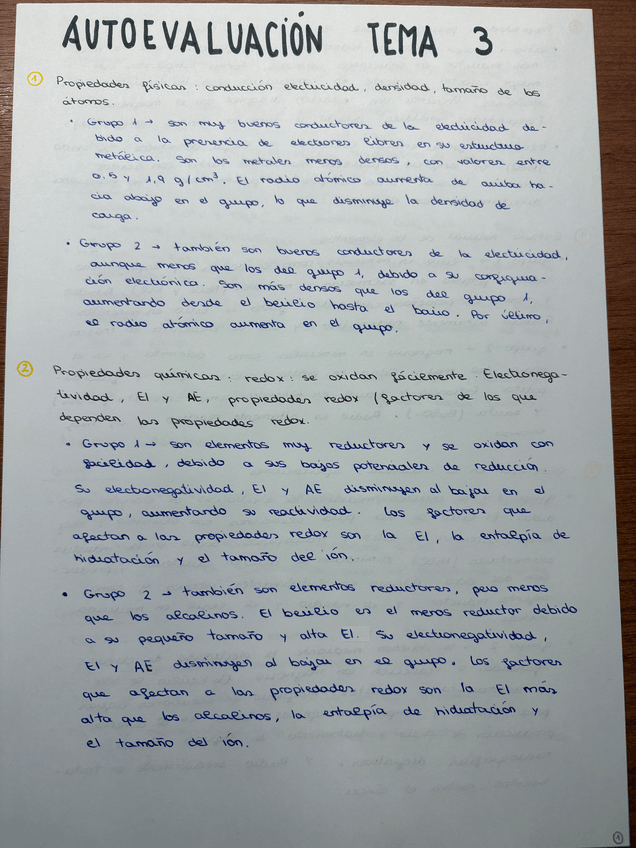 AUTOEVALUACIÓN TEMA 3
① Propiedades físicas : conducción electricidad, densidad, tamaño de los
átomos.
• Grupo 1 → son muy buenos conductores de la electricidad de-
bido a la presencia de electrones libres en su estructura
metálica. Son los metales menos densos, con valores entre
0.5 y 1,9 g/cm³. El radio atómico aumenta de arriba ha-
cia abajo en el grupo, lo que disminuye la densidad de
carga.
• Grupo 2 → también son buenos conductores de la electricidad,
aunque menos que los del grupo 1, debido a su configura-
ción electrónica. Son más densos que los del grupo 1,
aumentando desde el berilio hasta el bario. Por último,
el radio atómico aumenta en el grupo.
② Propiedades químicas : redox : se oxidan fácilmente. Electronega-
tividad, EI y AE, propiedades redox (factores de los que
dependen las propiedades redox.
• Grupo 1 → son elementos muy reductores y se oxidan con
facilidad, debido a sus bajos potenciales de reducción.
Su electronegatividad, EI y AE disminuyen al bajar en el
grupo, aumentando su reactividad. Los factores que
afectan a las propiedades redox son la EI, la entalpía de
hidratación y el tamaño del ión.
• Grupo 2 → también son elementos reductores, pero menos
que los alcalinos. El berilio es el menos reductor debido
a su pequeño tamaño y alta EI. Su electronegatividad,
EI y AE disminuyen al bajar en el grupo. Los factores
que afectan a las propiedades redox son la EI más
alta que los alcalinos, la entalpía de hidratación y
el tamaño del ión.
①